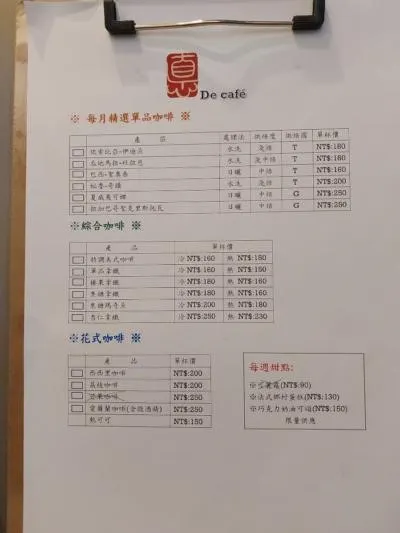 De café
※ 每月精選單品咖啡 ※
產 區 處理法 烘焙度 烘焙園 單杯價
衣索比亞-伊迪朵 水洗 淺焙 T NT$:180
瓜地馬拉-杜拉恩 水洗 淺中焙 T NT$:160
巴西-聖奧 日曬 中焙 T NT$:160
水洗 淺焙 T NT$:200
夏威夷可娜 日曬 中焙 G NT$:250
哥加巴哥聖克里斯托瓦 日曬 中焙 G NT$:250
※綜合咖啡 ※
產 品 單杯價
特調美式咖啡 冷 NT$:160 熱 NT$:150
單品拿鐵 冷 NT$:160 熱 NT$:150
榛果拿鐵 冷 NT$:180 熱 NT$:160
焦糖拿鐵 冷 NT$:180 熱 NT$:160
焦糖瑪奇朵 冷 NT$:200 熱 NT$:180
杏仁拿鐵 冷 NT$:250 熱 NT$:230
※花式咖啡 ※
產 品 單杯價
西西里咖啡 NT$:200
荔枝咖啡 NT$:200
芒果咖啡 NT$:250
愛爾蘭咖啡(含微酒精) NT$:250
熱可可 NT$:150
每週甜點:
※雪薯霜(NT$:90)
※法式鄉村蛋糕(NT$:130)
※巧克力奶油可頌(NT$:150)
限量供應